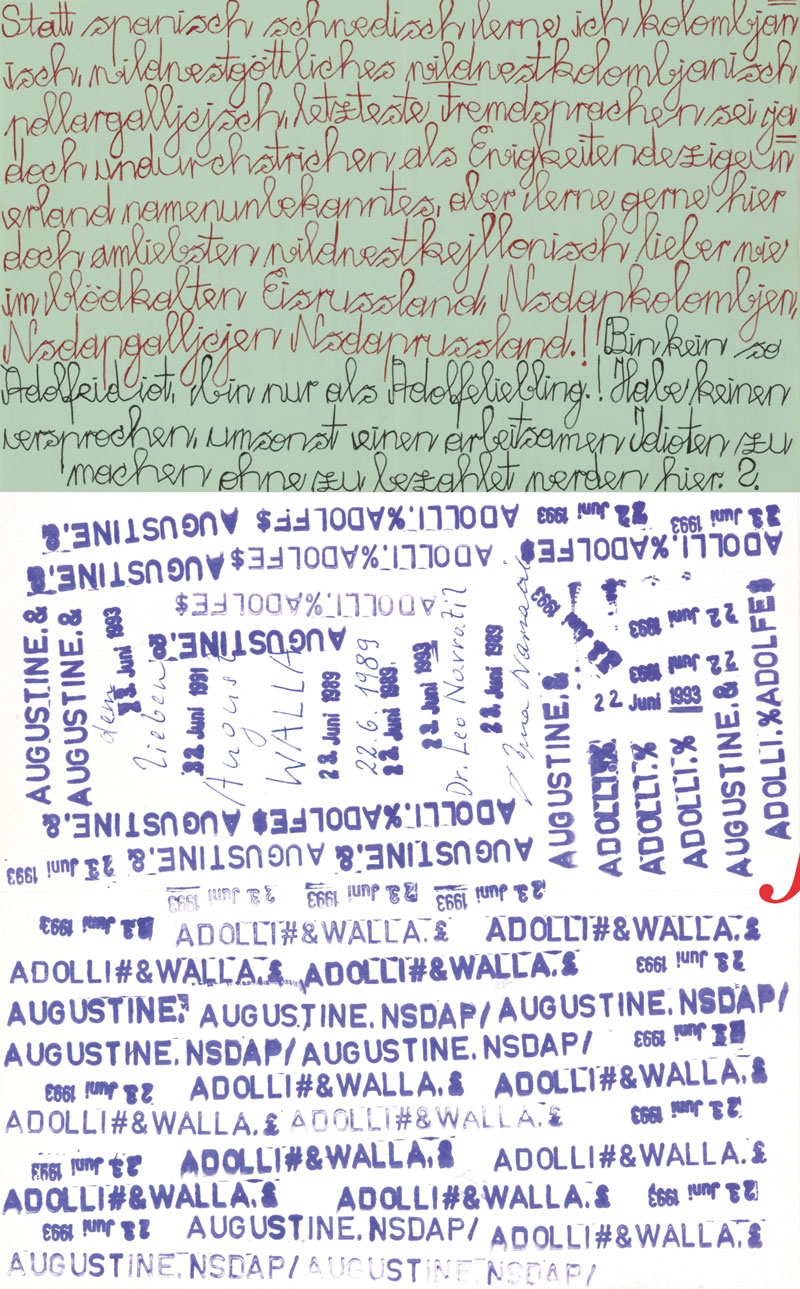 Statt spanisch schnedisch ilerne ich kolombjan
isch, nildnestgöttliches nildnestkolombjanisch
pollargalljcjsch, letzteste Fremdsprachen sei ja
doch undurchstrichen als Enigkeitendezigeun
erland namenunbekanntes, aber ilerne gerne hier
doch amliebsten nildnestkejllonisch lieber nie
im blödkalten Eisrussland, Nsdapkolombjen,
Nsdapgalljcjen Nsdaprussland.! Bin kein so
Adolfeidiot, ibin nur als Adolfeliebling.! Habe keinen
versprochen, umsonst einen arbeitsamen Idioten zu
machen ohne zu bezahlet nerden hier. ?.
AUGUSTINE.& ADOLLI.%ADOLFE$ 22 Juni 1993 23 Juni 1993
AUGUSTINE.& ADOLLI.%ADOLFE$ ADOLLI.%ADOLFE$
ADOLLI.%ADOLFE$
AUGUSTINE.&
AUGUSTINE.&
AUGUSTINE.&
dem 23 Juni 1993
lieben
22 Juni 1991
August
WALLA
23 Juni 1989
22.6.1989
23 Juni 1993
Dr. Leo Navratil
23 Juni 1989
22 Juni 1993
22 Juni 1993
22 Juni 1993
AUGUSTINE.&
ADOLLI.%
ADOLLI.%
ADOLLI.%
AUGUSTINE.&
ADOLLI.%ADOLFE$
AUGUSTINE.& ADOLLI.%ADOLFE$
23 Juni 1993 AUGUSTINE.& AUGUSTINE.&
23 Juni 1993 23 Juni 1993 23 Juni 1993
23 Juni 1993 ADOLLI#&WALLA.£ ADOLLI#&WALLA.£
ADOLLI#&WALLA.£ ADOLLI#&WALLA.£ 23 Juni 1993
AUGUSTINE. AUGUSTINE.NSDAP/ AUGUSTINE.NSDAP/
AUGUSTINE.NSDAP/ AUGUSTINE.NSDAP/ 23 Juni 1993
23 Juni 1993 ADOLLI#&WALLA.£ ADOLLI#&WALLA.£
ADOLLI#&WALLA.£ ADOLLI#&WALLA.£ 23 Juni 1993
23 Juni 1993 ADOLLI#&WALLA.£ ADOLLI#&WALLA.£
ADOLLI#&WALLA.£ ADOLLI#&WALLA.£ 23 Juni 1993
23 Juni 1993 AUGUSTINE.NSDAP/ ADOLLI#&WALLA.£
AUGUSTINE.NSDAP/ AUGUSTINE.NSDAP/